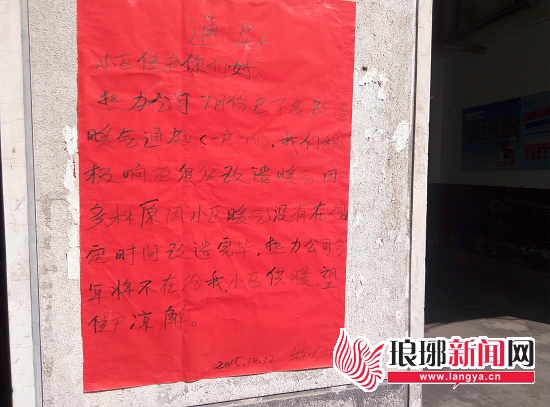 通知
小区住户你们好
热力公司7月份已下发改造
暖气通知(一户一阀),我们积
极响应但是改造暖气因
多种原因小区暖气没有在规
定时间改造完毕,热力公司今
年将不在给我小区供暖望
住户凉解。
2015.10.12
琅琊新闻网
www.langya.cn